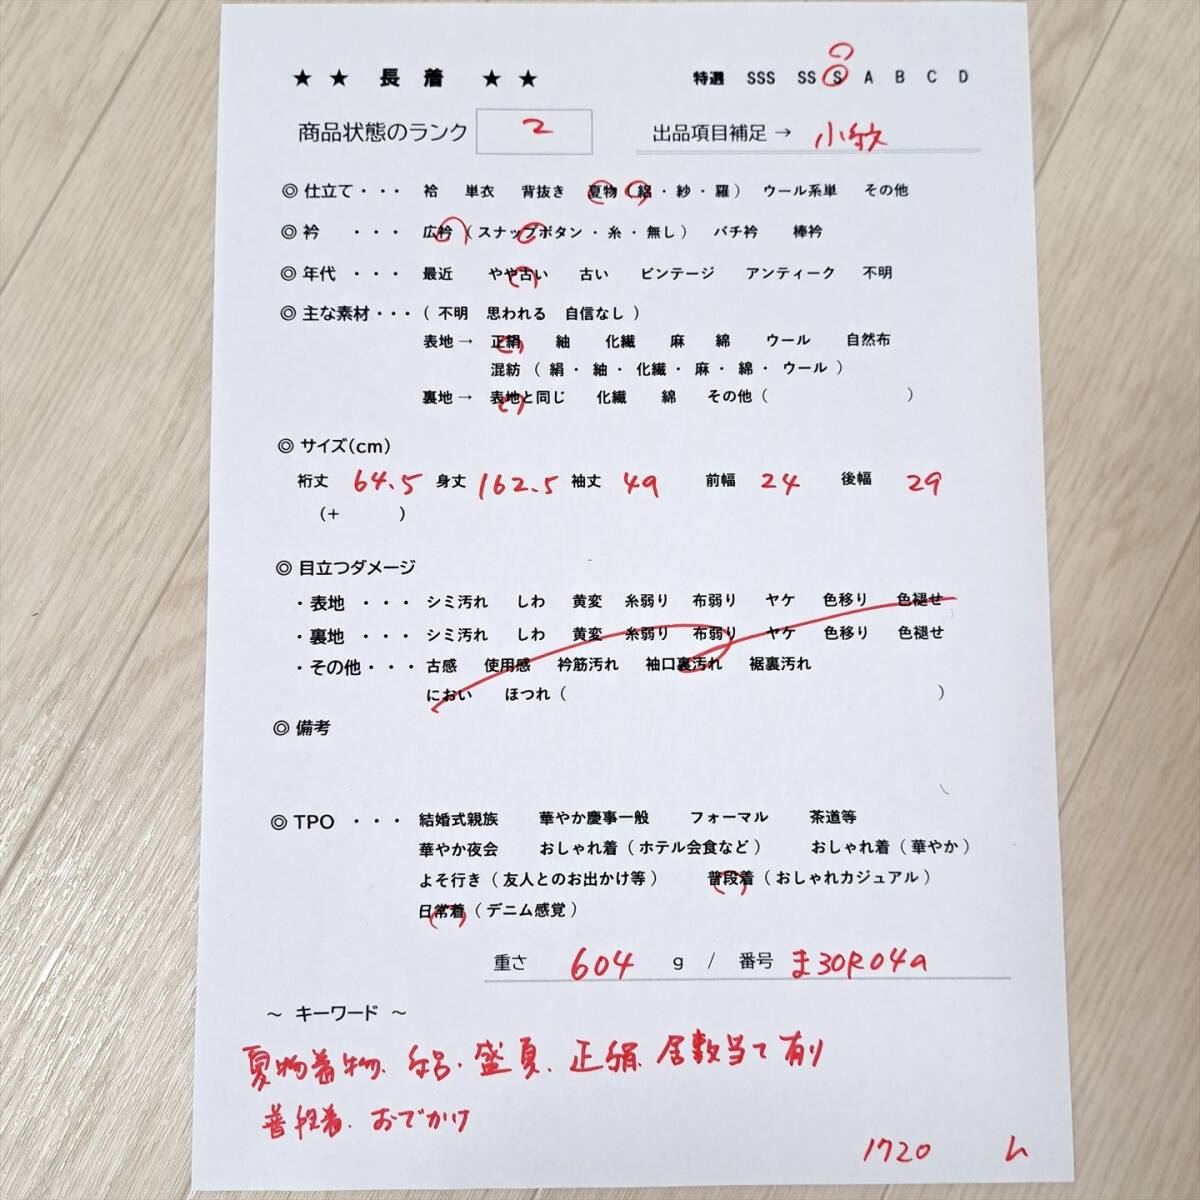 ★ ★ 長 着 ★ ★ 特選 SSS SS S A B C D
商品状態のランク 2 出品項目補足 → 小紋
◎ 仕立て ・・・ 袷 単衣 背抜き 夏物 ( 絽 ・ 紗 ・ 羅 ) ウール系単 その他
◎ 衿 ・・・ 広衿 ( スナップボタン ・ 糸 ・ 無し ) バチ衿 棒衿
◎ 年代 ・・・ 最近 やや古い 古い ビンテージ アンティーク 不明
◎ 主な素材 ・・・ ( 不明 思われる 自信なし )
表地 → 正絹 紬 化繊 麻 綿 ウール 自然布
混紡 ( 絹 ・ 紬 ・ 化繊 ・ 麻 ・ 綿 ・ ウール )
裏地 → 表地と同じ 化繊 綿 その他 ( )
◎ サイズ(cm)
裄丈 64.5 身丈 162.5 袖丈 49 前幅 24 後幅 29
(+ )
◎ 目立つダメージ
・表地 ・・・ シミ汚れ しわ 黄変 糸弱り 布弱り ヤケ 色移り 色褪せ
・裏地 ・・・ シミ汚れ しわ 黄変 糸弱り 布弱り ヤケ 色移り 色褪せ
・その他 ・・・ 古感 使用感 衿筋汚れ 袖口裏汚れ 裾裏汚れ
におい ほつれ ( )
◎ 備考
◎ TPO ・・・ 結婚式親族 華やか慶事一般 フォーマル 茶道等
華やか夜会 おしゃれ着 ( ホテル会食など ) おしゃれ着 ( 華やか )
よそ行き ( 友人とのお出かけ等 ) 普段着 ( おしゃれカジュアル )
日常着 ( デニム感覚 )
重さ 604 g / 番号 ま30R04a
～ キーワード ～
夏物着物、絽、盛夏、正絹、居敷当て有り
普段着、おでかけ
1720 ム